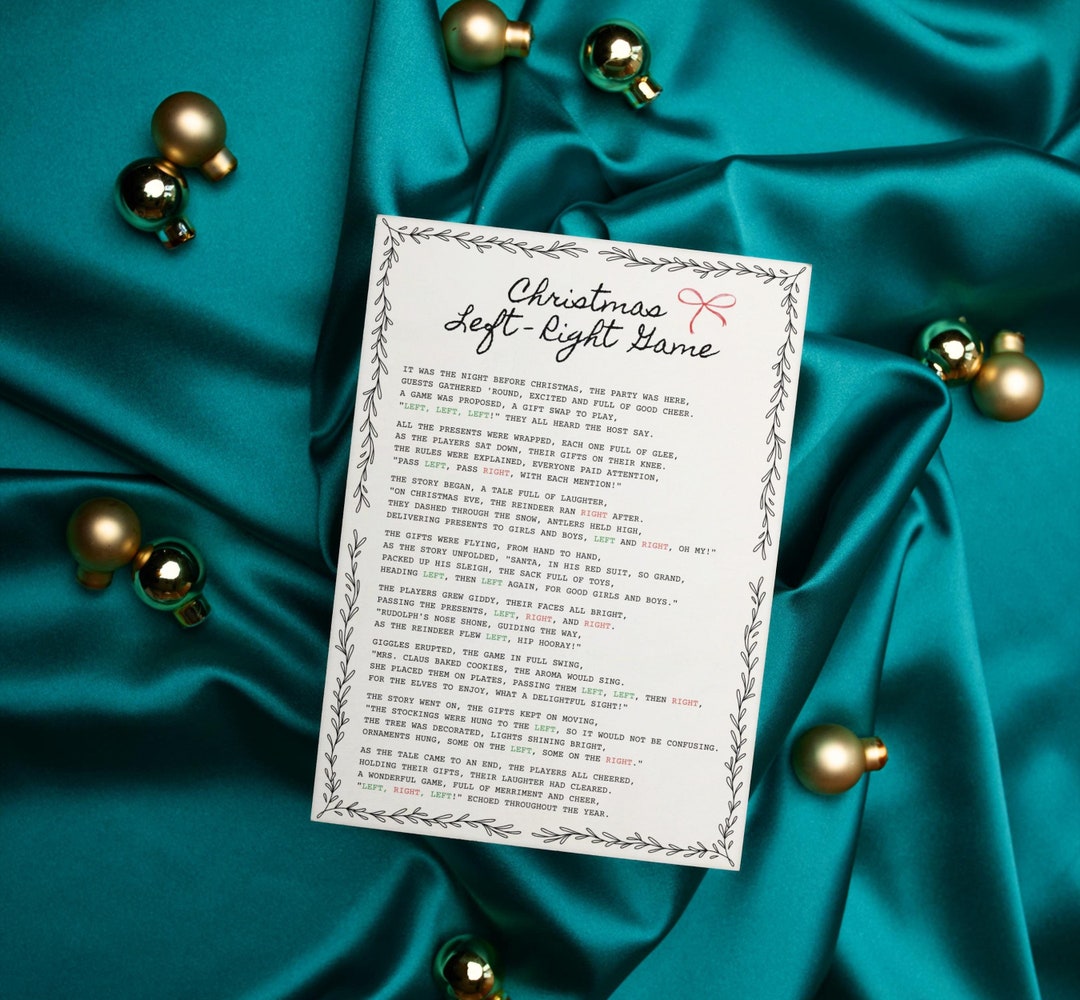 Christmas
Left-Right Game
IT WAS THE NIGHT BEFORE CHRISTMAS, THE PARTY WAS HERE,
GUESTS GATHERED 'ROUND, EXCITED AND FULL OF GOOD CHEER.
A GAME WAS PROPOSED, A GIFT SWAP TO PLAY,
"LEFT, LEFT, LEFT!" THEY ALL HEARD THE HOST SAY.
ALL THE PRESENTS WERE WRAPPED, EACH ONE FULL OF GLEE,
AS THE PLAYERS SAT DOWN, THEIR GIFTS ON THEIR KNEE.
THE RULES WERE EXPLAINED, EVERYONE PAID ATTENTION,
"PASS LEFT, PASS RIGHT, WITH EACH MENTION!"
THE STORY BEGAN, A TALE FULL OF LAUGHTER,
"ON CHRISTMAS EVE, THE REINDEER RAN RIGHT AFTER.
THEY DASHED THROUGH THE SNOW, ANTLERS HELD HIGH,
DELIVERING PRESENTS TO GIRLS AND BOYS, LEFT AND RIGHT, OH MY!"
THE GIFTS WERE FLYING, FROM HAND TO HAND,
AS THE STORY UNFOLDED, "SANTA, IN HIS RED SUIT, SO GRAND,
PACKED UP HIS SLEIGH, THE SACK FULL OF TOYS,
HEADING LEFT, THEN LEFT AGAIN, FOR GOOD GIRLS AND BOYS."
THE PLAYERS GREW GIDDY, THEIR FACES ALL BRIGHT,
PASSING THE PRESENTS, LEFT, RIGHT, AND RIGHT.
"RUDOLPH'S NOSE SHONE, GUIDING THE WAY,
AS THE REINDEER FLEW LEFT, HIP HOORAY!"
GIGGLES ERUPTED, THE GAME IN FULL SWING,
"MRS. CLAUS BAKED COOKIES, THE AROMA WOULD SING.
SHE PLACED THEM ON PLATES, PASSING THEM LEFT, LEFT, THEN RIGHT,
FOR THE ELVES TO ENJOY, WHAT A DELIGHTFUL SIGHT!"
THE STORY WENT ON, THE GIFTS KEPT ON MOVING,
"THE STOCKINGS WERE HUNG TO THE LEFT, SO IT WOULD NOT BE CONFUSING.
THE TREE WAS DECORATED, LIGHTS SHINING BRIGHT,
ORNAMENTS HUNG, SOME ON THE LEFT, SOME ON THE RIGHT."
AS THE TALE CAME TO AN END, THE PLAYERS ALL CHEERED,
HOLDING THEIR GIFTS, THEIR LAUGHTER HAD CLEARED.
A WONDERFUL GAME, FULL OF MERRIMENT AND CHEER,
"LEFT, RIGHT, LEFT!" ECHOED THROUGHOUT THE YEAR.